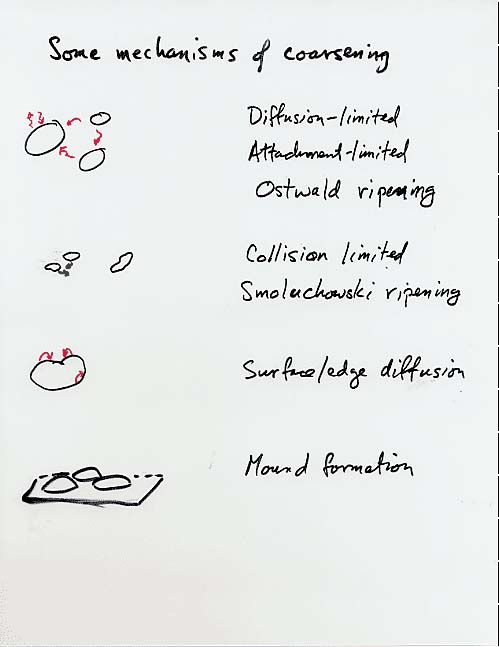 Some mechanisms of coarsening
Diffusion-limited
Attachment-limited
Ostwald ripening
Collision limited
Smoluchowski ripening
Surface/edge diffusion
Mound formation